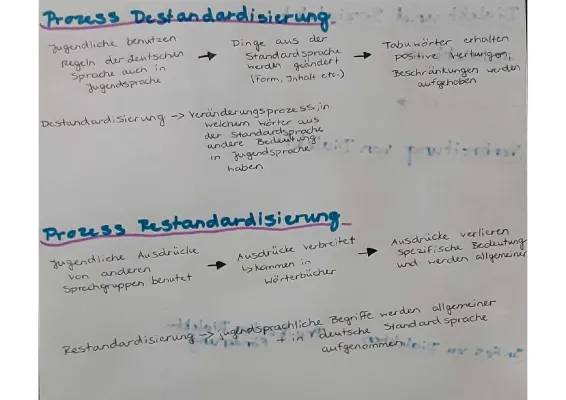 Prozess Destandardisierung
Jugendliche benutzen
Regeln der deutschen
Sprache auch in
Jugendsprache
→ Dinge aus der
Standardsprache
werden geändert
(Form, Inhalt etc.)
→ Tabuwörter erhalten
positive Wertungen,
Beschränkungen werden
aufgehoben
Destandardisierung → Veränderungsprozess, in
welchem Wörter aus
der Standardsprache
andere Bedeutung
in Jugendsprache
haben
Prozess Restandardisierung
Jugendliche Ausdrücke
von anderen
Sprechgruppen benutzt
→ Ausdrücke verbreitet
↳ kommen in
Wörterbücher
→ Ausdrücke verlieren
spezifische Bedeutung
und werden allgemeiner
Restandardisierung → jugendsprachliche Begriffe werden allgemeiner
+ in deutsche Standardsprache
aufgenommen